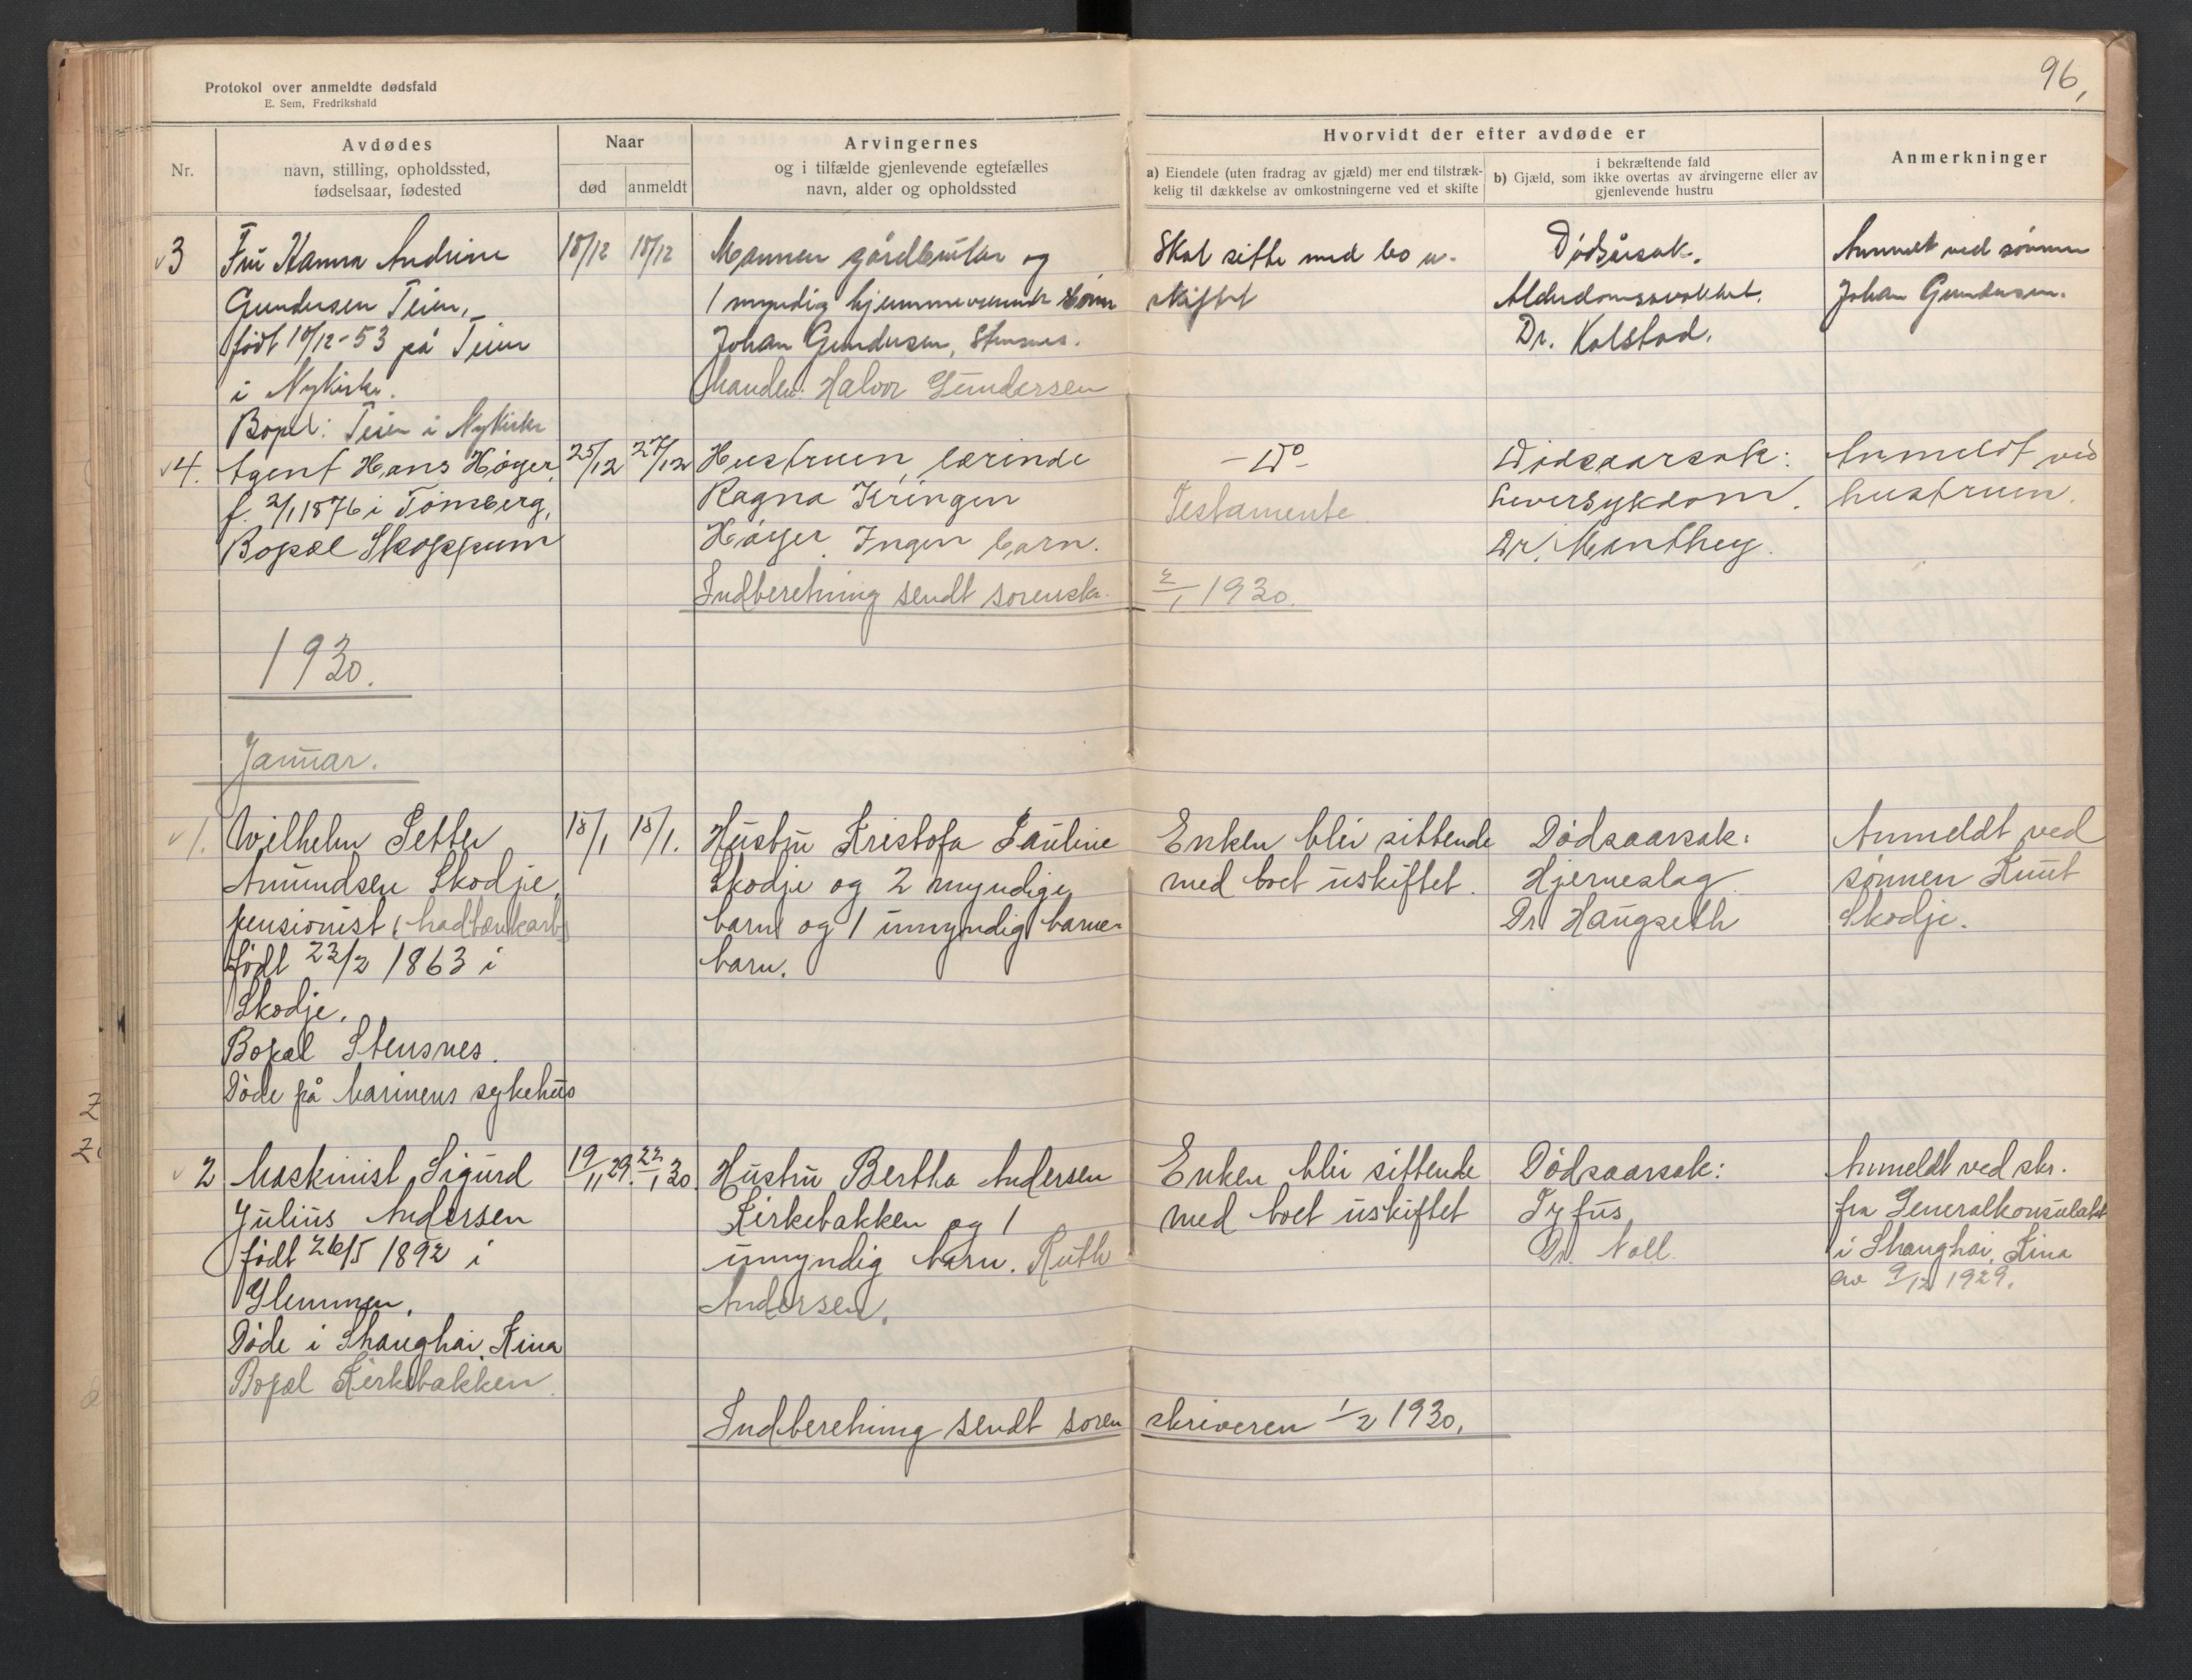 96,
Protokol over anmeldte dødsfald
E. Sem, Fredrikshald
Nr.
Avdødes
navn, stilling, opholdssted,
fødselsaar, fødested
Naar
død anmeldt
Arvingernes
og i tilfælde gjenlevende egtefælles
navn, alder og opholdssted
Hvorvidt der efter avdøde er
a) Eiendele (uten fradrag av gjæld) mer end tilstræk-
kelig til dækkelse av omkostningerne ved et skifte
i bekræftende fald
b) Gjæld, som ikke overtas av arvingerne eller av
gjenlevende hustru
Anmerkninger
3 Fru Hanna Andrine 18/12 18/12 Mannen gårdbruker og Skal sitte med bo u- Dødsårsak. Anmeldt ved sønnen
Gundersen Teien, 1 myndig hjemmeværende sønn skiftet Alderdomssvakhet. Johan Gundersen.
født 10/12-53 på Teien Johan Gundersen, Stensnes. Dr. Kolstad.
i Nykirke. Manden: Halvor Gundersen
Bopel: Teien i Nykirke
4. Agent Hans Høyer, 25/12 27/12 Hustruen, lærinde -Do- Dødsaarsak: Anmeldt ved
f. 2/1 1876 i Tønsberg, Ragna Kringen Testamente. Leversykdom. hustruen.
Bopæl Skoppum Høyer. Ingen barn. Dr. Manthey.
Indberetning sendt sorenskr. 2/1 1930.
1930.
Januar.
1. Wilhelm Petter 18/1 18/1. Hustru Kristofa Pauline Enken blir sittende Dødsaarsak: Anmeldt ved
Amundsen Skodje, Skodje og 2 myndige med boet uskiftet. Hjerneslag. sønnen Knut
pensionist barn og 1 umyndig barne- Dr. Haugseth Skodje.
født 22/2 1863 i barn.
Skodje.
Bopæl Stensnes.
Døde på Marinens sykehus
2 Maskinist Sigurd 19/11 29. 22/1 30. Hustru Bertha Andersen Enken blir sittende Dødsaarsak: Anmeldt ved skr.
Julius Andersen Kirkebakken og 1 med boet uskiftet Tyfus fra Generalkonsulatet
født 26/5 1892 i umyndig barn. Ruth Dr. Noll. i Shanghai, Kina
Glemmen. Andersen. av 9/12 1929.
Døde i Shanghai, Kina
Bopæl Kirkebakken.
Indberetning sendt sorenskriveren 1/2 1930.